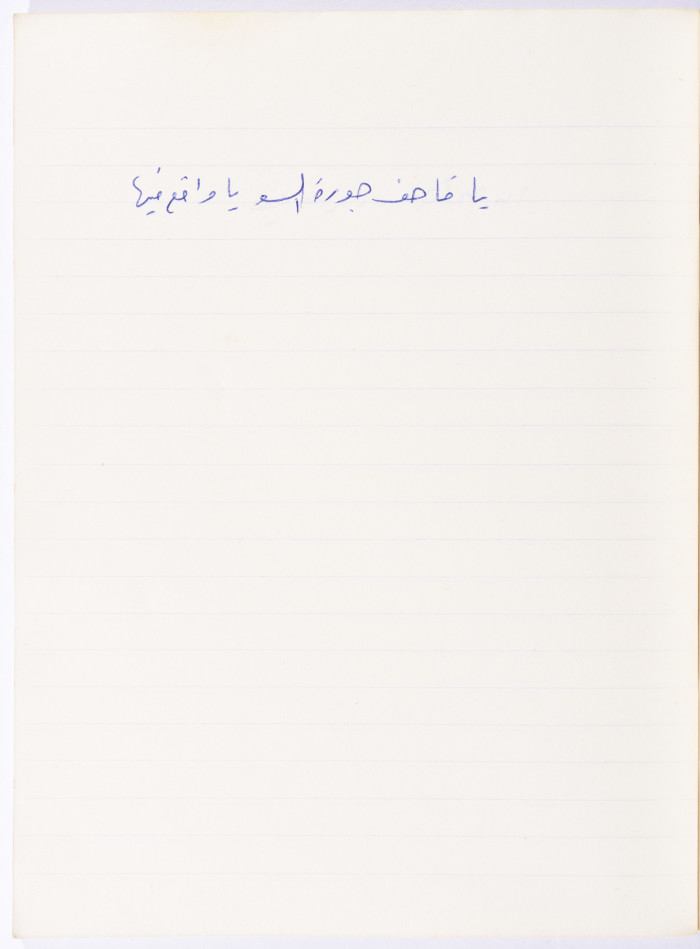 يا قاحف جورة السو يا واقع فيها